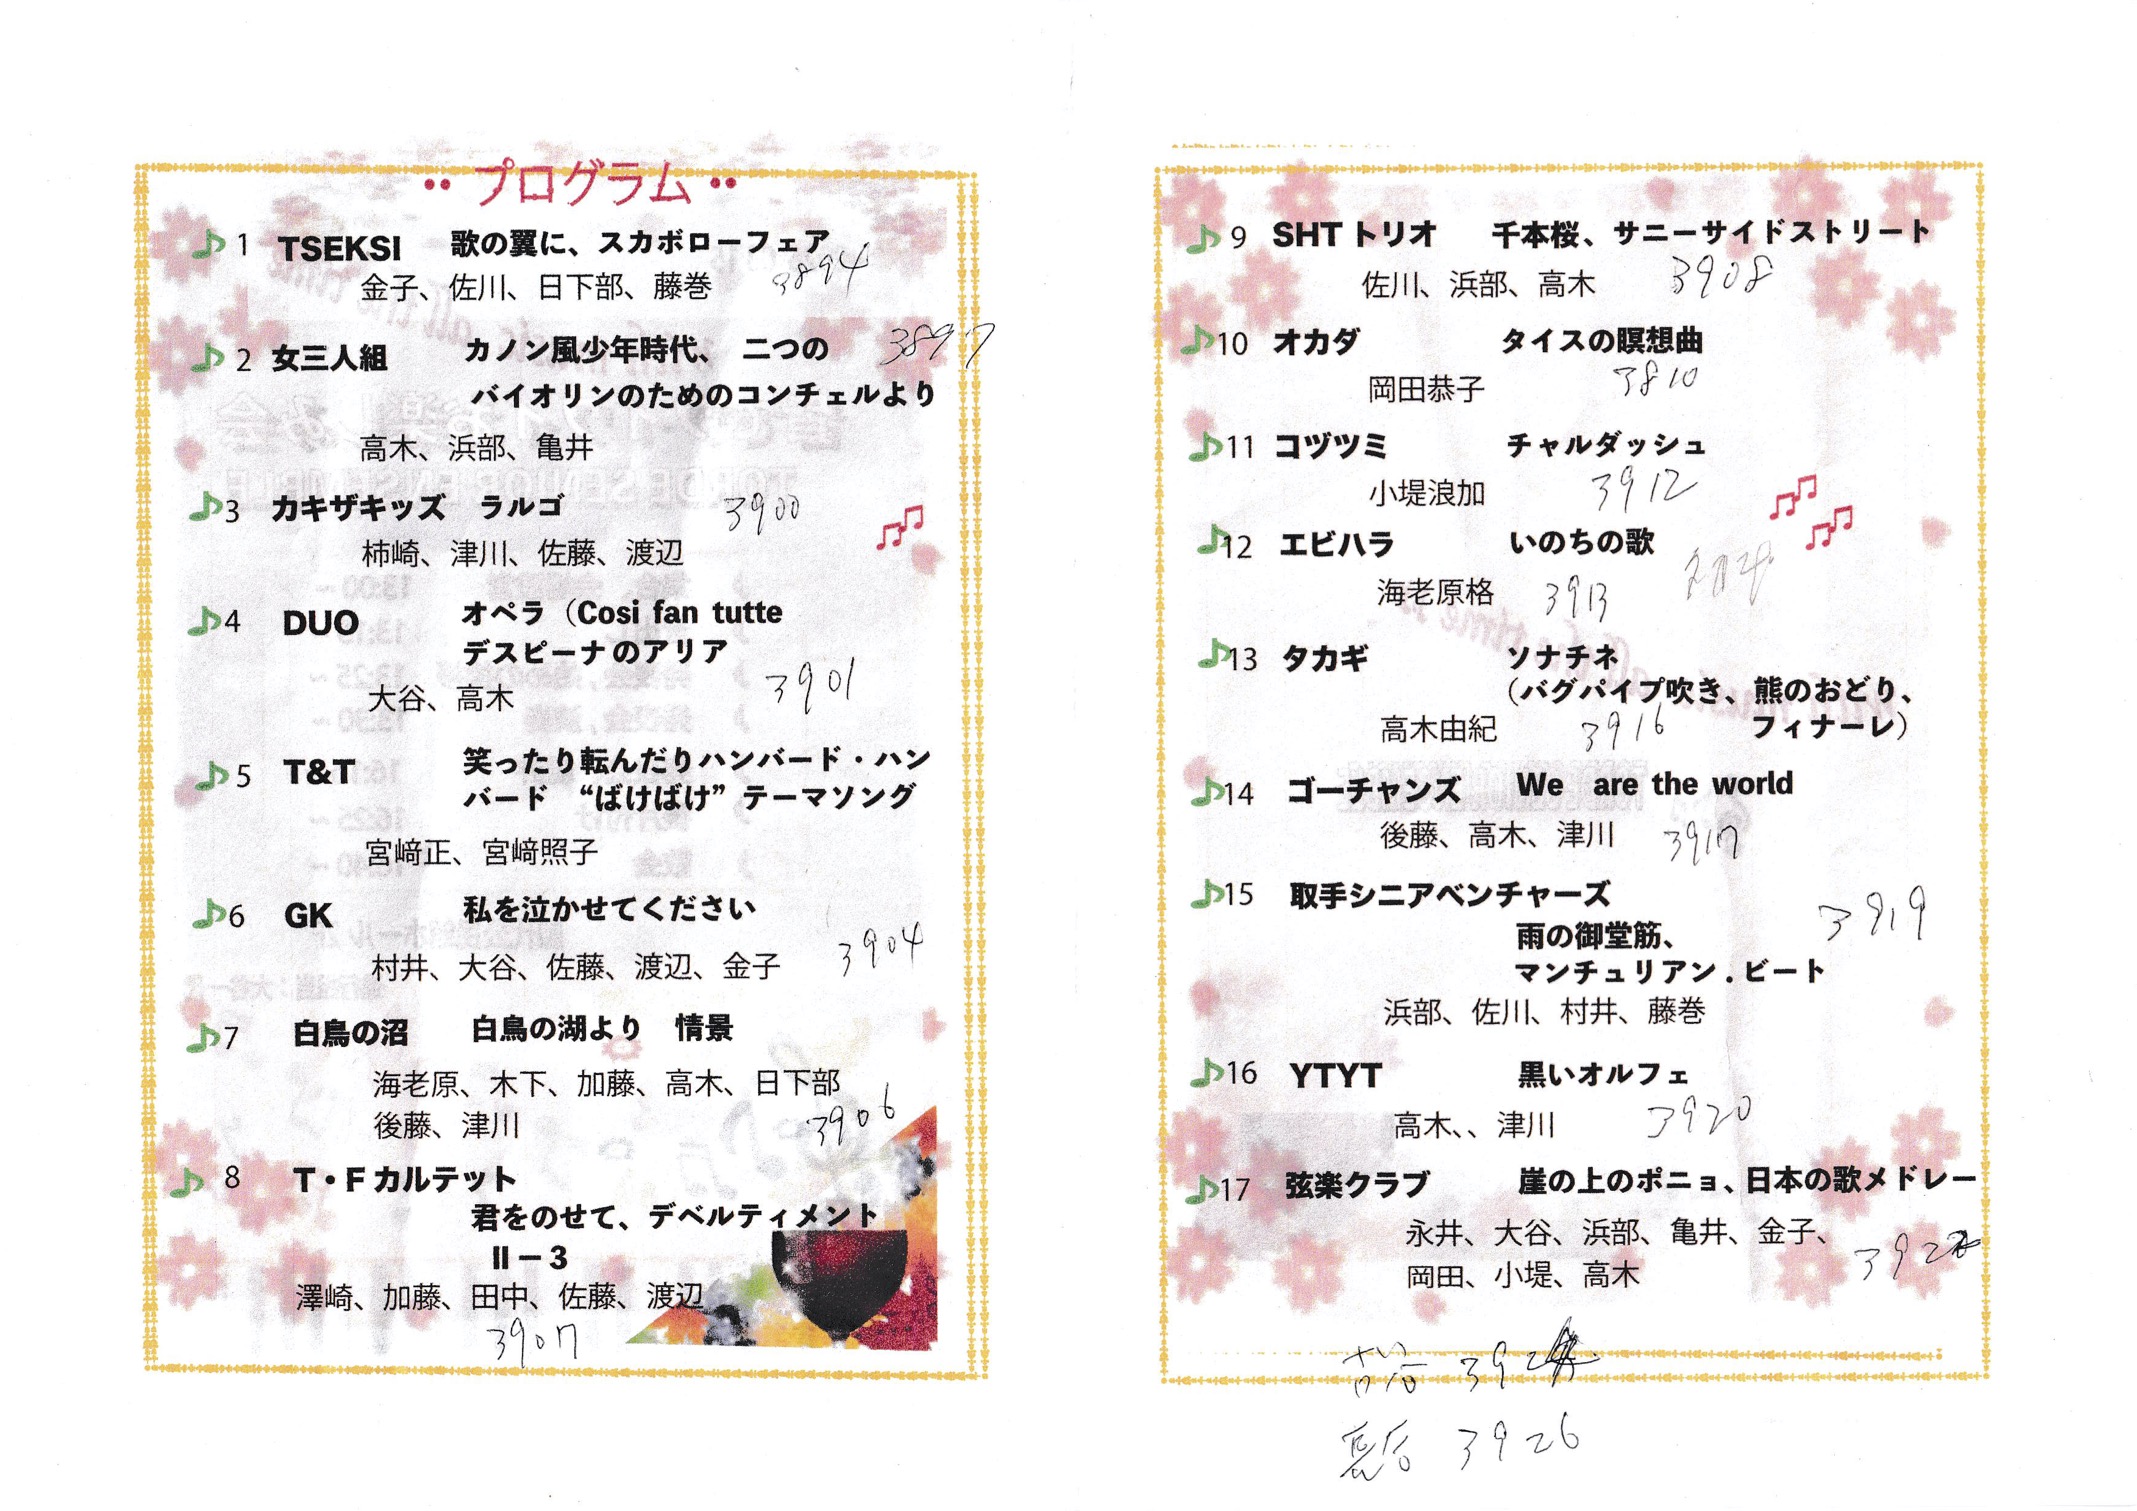 プログラム
1 TSEKSI 歌の翼に、スカボローフェア
金子、佐川、日下部、藤巻 3894
2 女三人組 カノン風少年時代、 二つの 3897
バイオリンのためのコンチェルより
高木、浜部、亀井
3 カキザキッズ ラルゴ 3900
柿崎、津川、佐藤、渡辺
4 DUO オペラ（Cosi fan tutte
デスピーナのアリア
大谷、高木 3901
5 T&T 笑ったり転んだりハンバード・ハン
バード “ばけばけ” テーマソング
宮﨑正、宮﨑照子
6 GK 私を泣かせてください
村井、大谷、佐藤、渡辺、金子 3904
7 白鳥の沼 白鳥の湖より 情景
海老原、木下、加藤、高木、日下部
後藤、津川 3906
8 T・Fカルテット
君をのせて、デベルティメント
Ⅱ－3
澤崎、加藤、田中、佐藤、渡辺
3907
9 SHTトリオ 千本桜、サニーサイドストリート
佐川、浜部、高木 3908
10 オカダ タイスの瞑想曲
岡田恭子 3810
11 コヅツミ チャルダッシュ
小堤浪加 3912
12 エビハラ いのちの歌
海老原格 3913
13 タカギ ソナチネ
（バグパイプ吹き、熊のおどり、
高木由紀 3916 フィナーレ）
14 ゴーチャンズ We are the world
後藤、高木、津川 3917
15 取手シニアベンチャーズ 3919
雨の御堂筋、
マンチュリアン．ビート
浜部、佐川、村井、藤巻
16 YTYT 黒いオルフェ
高木、、津川 3920
17 弦楽クラブ 崖の上のポニョ、日本の歌メドレー
永井、大谷、浜部、亀井、金子、
岡田、小堤、高木
3926